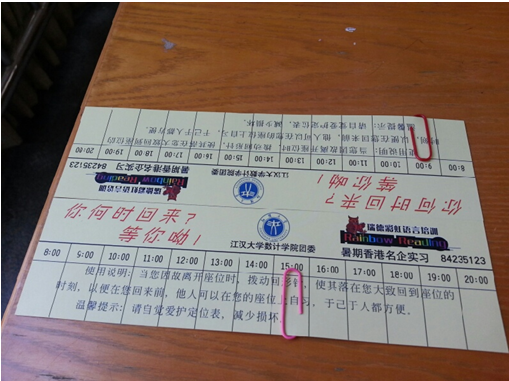 使用说明:当您因故离开座位时,拨动回形针,使其落在您大致回到座位的
时刻,以便在您回来前,他人可以在您的座位上自习,于己于人都方便。
温馨提示:请自觉爱护定位表,减少损坏。
8:00 9:00 10:00 11:00 12:00 13:00 14:00 15:00 16:00 17:00 18:00 19:00 20:00
你何时回来?
等你呦!
江汉大学数计学院团委
瑞德彩虹语言培训
Rainbow Reading
暑期香港名企实习 84235123
你何时回来?
等你呦!
江汉大学数计学院团委
瑞德彩虹语言培训
Rainbow Reading
暑期香港名企实习 84235123
8:00 9:00 10:00 11:00 12:00 13:00 14:00 15:00 16:00 17:00 18:00 19:00 20:00
使用说明:当您因故离开座位时,拨动回形针,使其落在您大致回到座位的
时刻,以便在您回来前,他人可以在您的座位上自习,于己于人都方便。
温馨提示:请自觉爱护定位表,减少损坏。